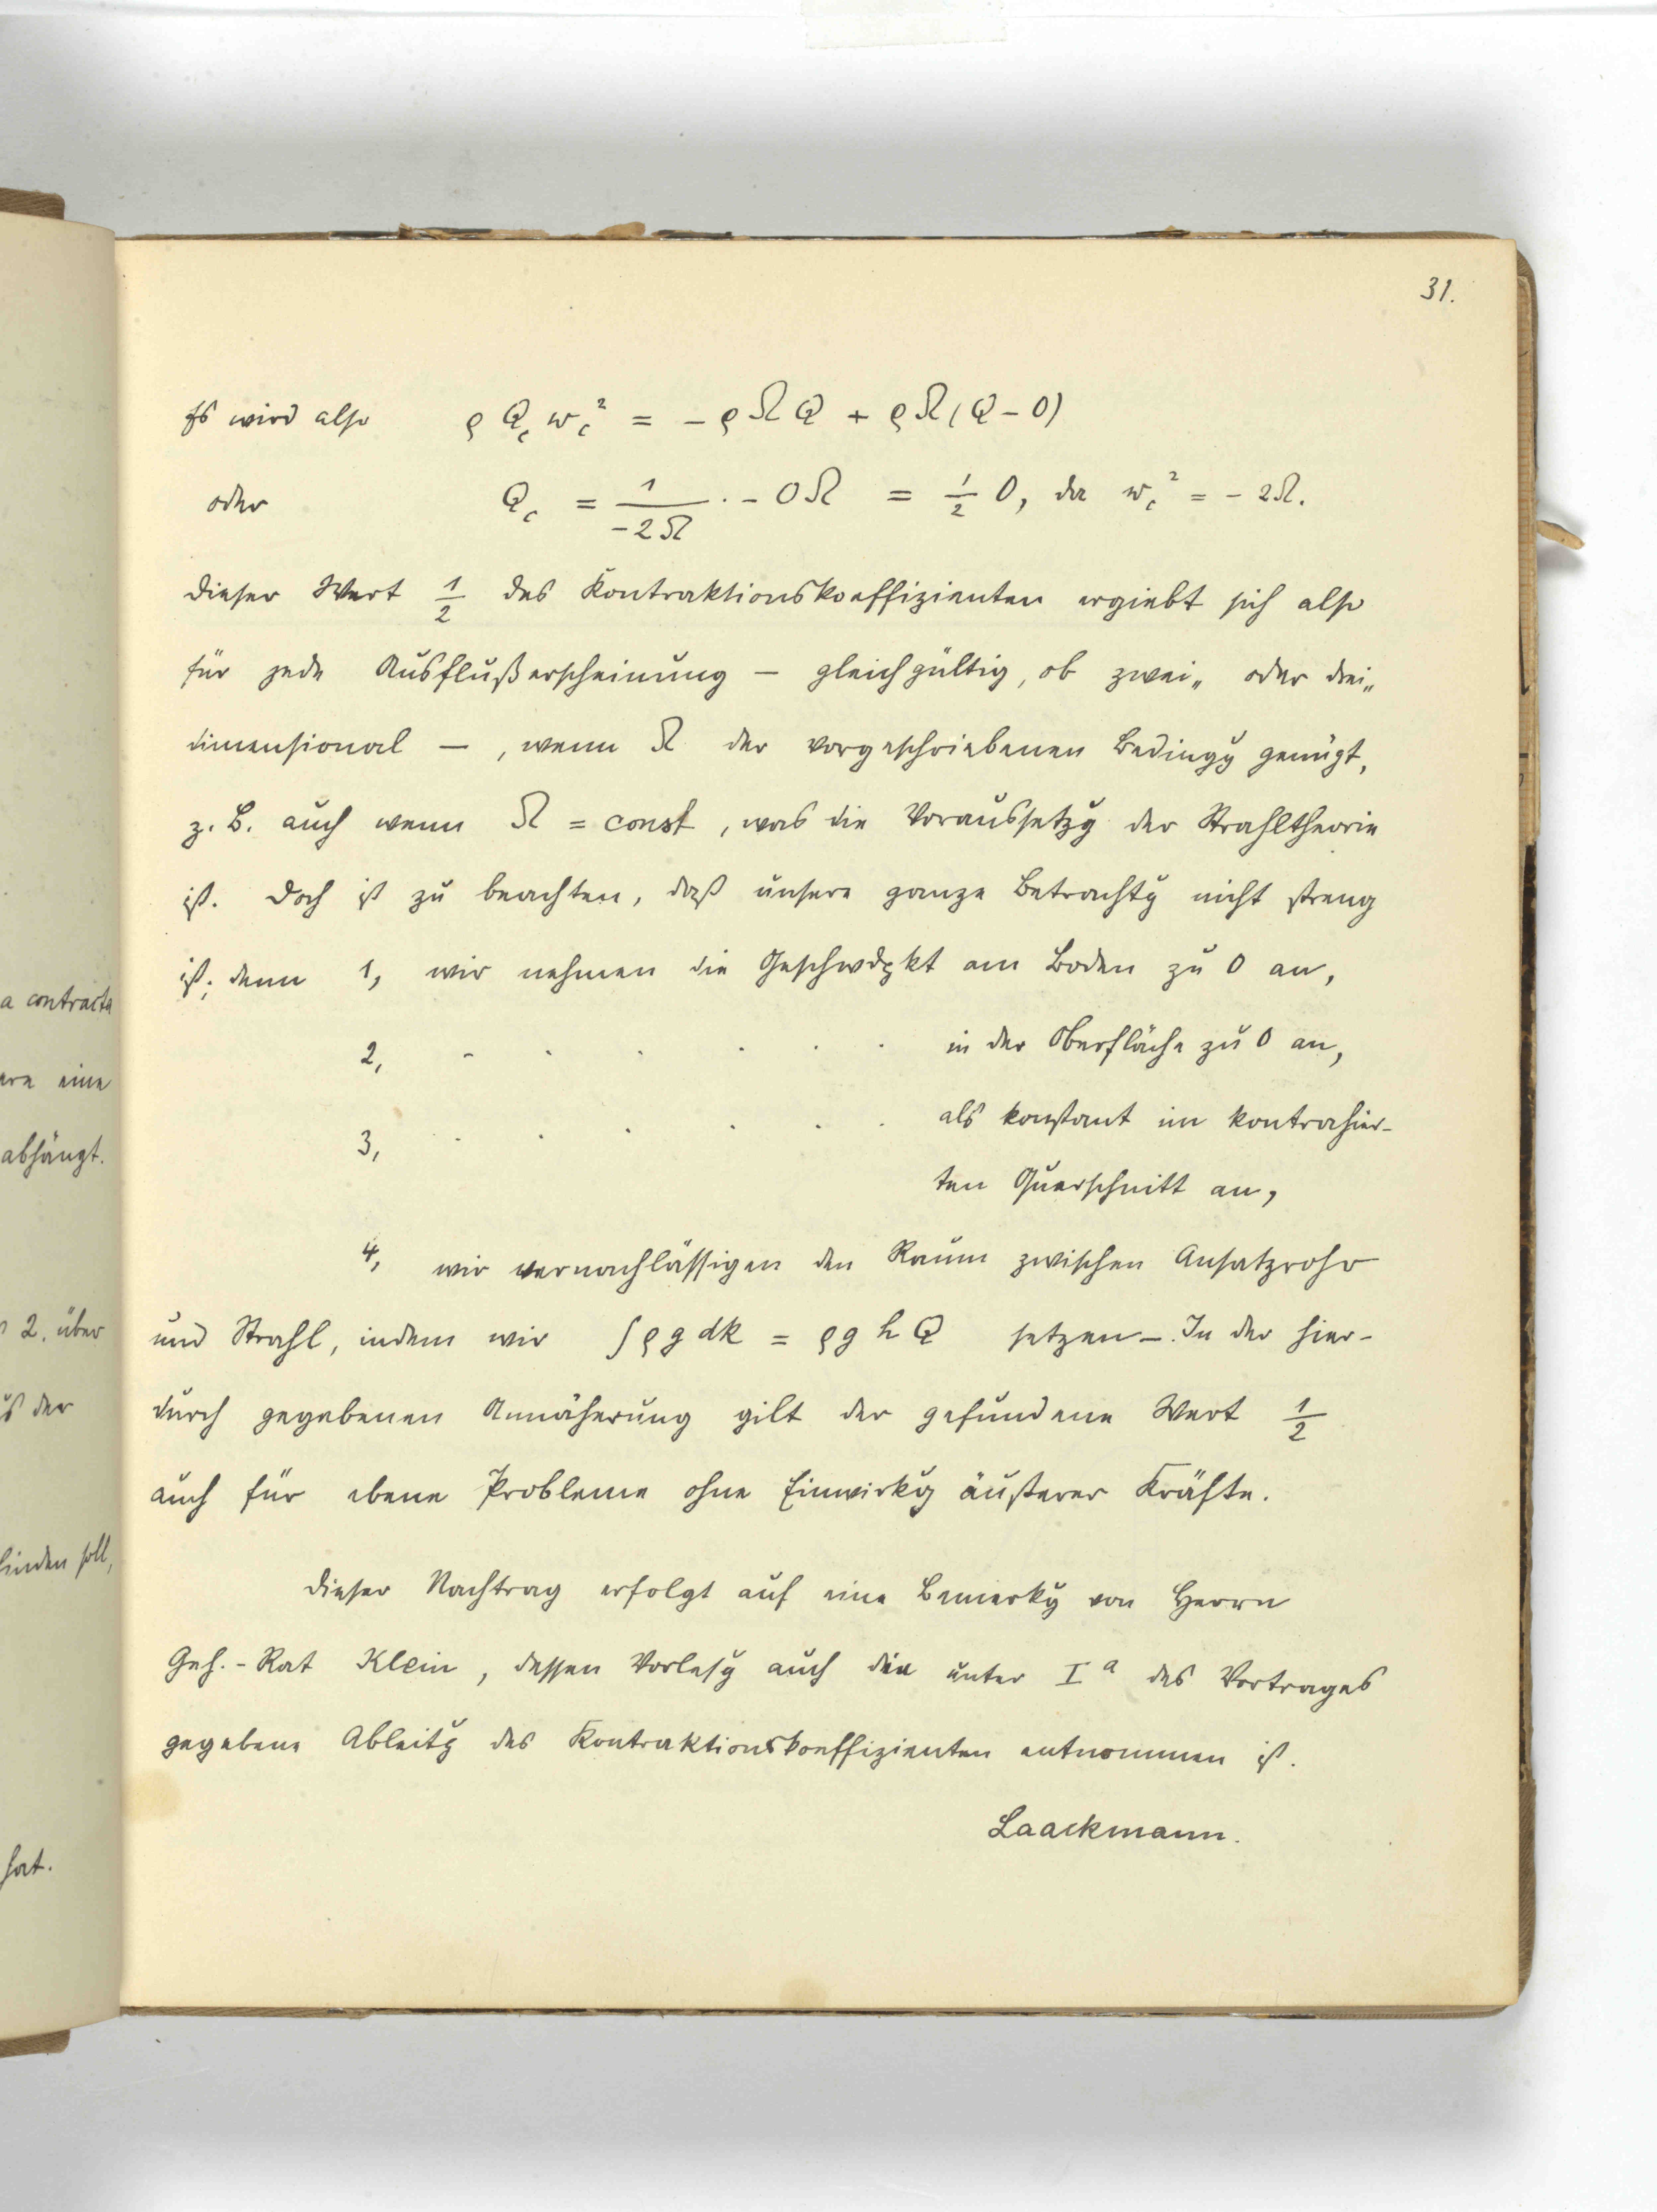 31.
Es wird also ϱ Q_c w_c² = - ϱ Ω Q + ϱ Ω (Q - O)
oder Q_c = 1/(-2Ω) · - OΩ = 1/2 O, da w_c² = - 2Ω.
Dieser Wert 1/2 des Kontraktionskoeffizienten ergiebt sich also
für jede Ausflußerscheinung — gleichgültig, ob zwei„ oder drei„
dimensional —, wenn Ω der vorgeschriebenen Bedingg genügt,
z. B. auch wenn Ω = const, was die Voraussetzg der Strahltheorie
ist. Doch ist zu beachten, daß unsere ganze Betrachtg nicht streng
ist; denn 1, wir nehmen die Geschwdgkt am Boden zu 0 an,
2, - · · · · · in der Oberfläche zu 0 an,
3, · · · · · · als konstant im kontrahier-
ten Querschnitt an,
4, wir vernachlässigen den Raum zwischen Ansatzrohr
und Strahl, indem wir ∫ ϱ g dk = ϱ g h Q setzen —. In der hier-
durch gegebenen Annäherung gilt der gefundene Wert 1/2
auch für ebene Probleme ohne Einwirkg äußerer Kräfte.
Dieser Nachtrag erfolgt auf eine Bemerkg von Herrn
Geh.-Rat Klein, dessen Vorlesg auch die unter I a des Vortrages
gegebene Ableitg des Kontraktionskoeffizienten entnommen ist.
Laackmann.
a contracta
eine
abhängt.
2. über
der
finden soll,
hat.